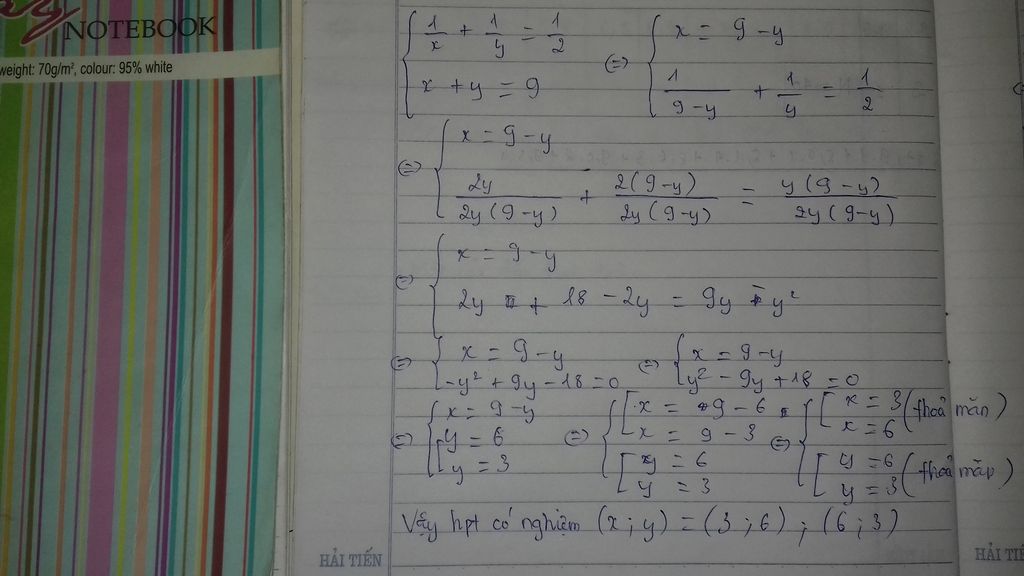 NOTEBOOK
weight: 70g/m², colour: 95% white
{ 1/x + 1/y = 1/2
x + y = 9
⇔ { x = 9 - y
1/(9 - y) + 1/y = 1/2
⇔ { x = 9 - y
2y/(2y(9 - y)) + 2(9 - y)/(2y(9 - y)) = y(9 - y)/(2y(9 - y))
⇔ { x = 9 - y
2y + 18 - 2y = 9y - y²
⇔ { x = 9 - y
-y² + 9y - 18 = 0
⇔ { x = 9 - y
y² - 9y + 18 = 0
⇔ { x = 9 - y
[ y = 6
y = 3
⇔ { [ x = 9 - 6
x = 9 - 3
[ y = 6
y = 3
⇔ { [ x = 3
x = 6 (thoả mãn)
[ y = 6
y = 3 (thoả mãn)
Vậy hpt có nghiệm (x ; y) = (3 ; 6) ; (6 ; 3)
HẢI TIẾN
HẢI TIẾ